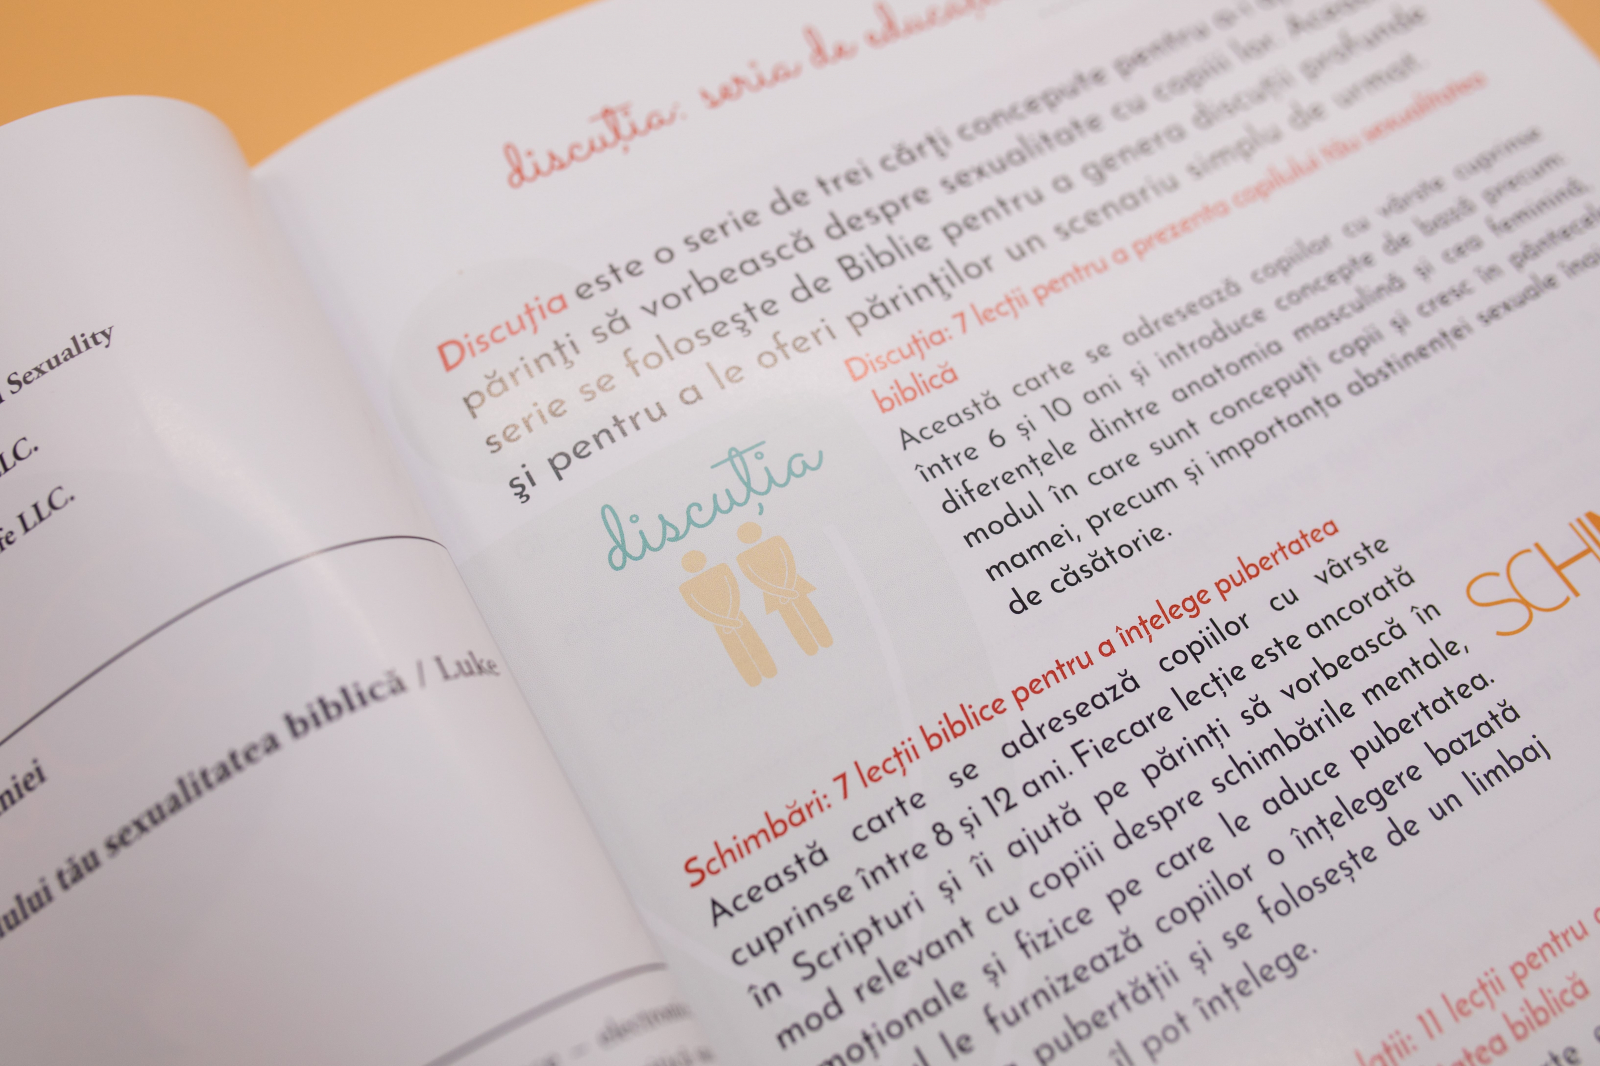 Sexuality
LLC.
LLC.
biblică / Luke
tău sexualitatea
discuția: seria de
Discuția este o serie de trei cărți concepute pentru
părinți să vorbească despre sexualitate cu copiii lor.
serie se folosește de Biblie pentru a genera discuții profunde
şi pentru a le oferi părinților un scenariu simplu de urmat.
Discuția: 7 lecții pentru a prezenta copilului tău sexualitatea
biblică
Această carte se adresează copiilor cu vârste cuprinse
între 6 și 10 ani și introduce concepte de bază precum
diferențele dintre anatomia masculină și cea feminină,
modul în care sunt concepuți copii și cresc în pântecele
mamei, precum și importanța abstinenței sexuale
de căsătorie.
discuția
Schimbări: 7 lecții biblice pentru a înțelege pubertatea
Această carte se adresează copiilor cu vârste
cuprinse între 8 și 12 ani. Fiecare lecție este ancorată
în Scripturi și îi ajută pe părinți să vorbească în
mod relevant cu copiii despre schimbările mentale,
moționale și fizice pe care le aduce pubertatea.
le furnizează copiilor o înțelegere bazată
pubertății și se folosește de un limbaj
îl pot înțelege.
SCHI
11 lecții pentru
biblică